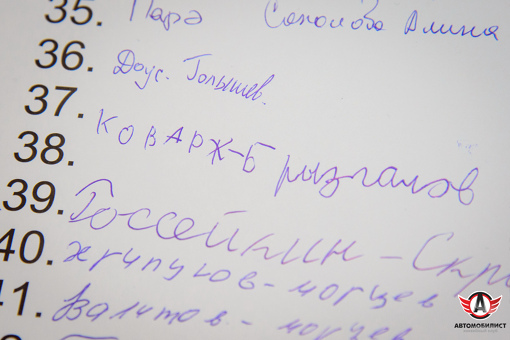 35. Пара Соколова Алина
36. Доус. Голышев.
37. КОВАРЖ-Брызгалов
38.
39. Госсейкин - Скр
40. Хрипунов - могцев
41. Валитов - могцев
АВТОМОБИЛИСТ